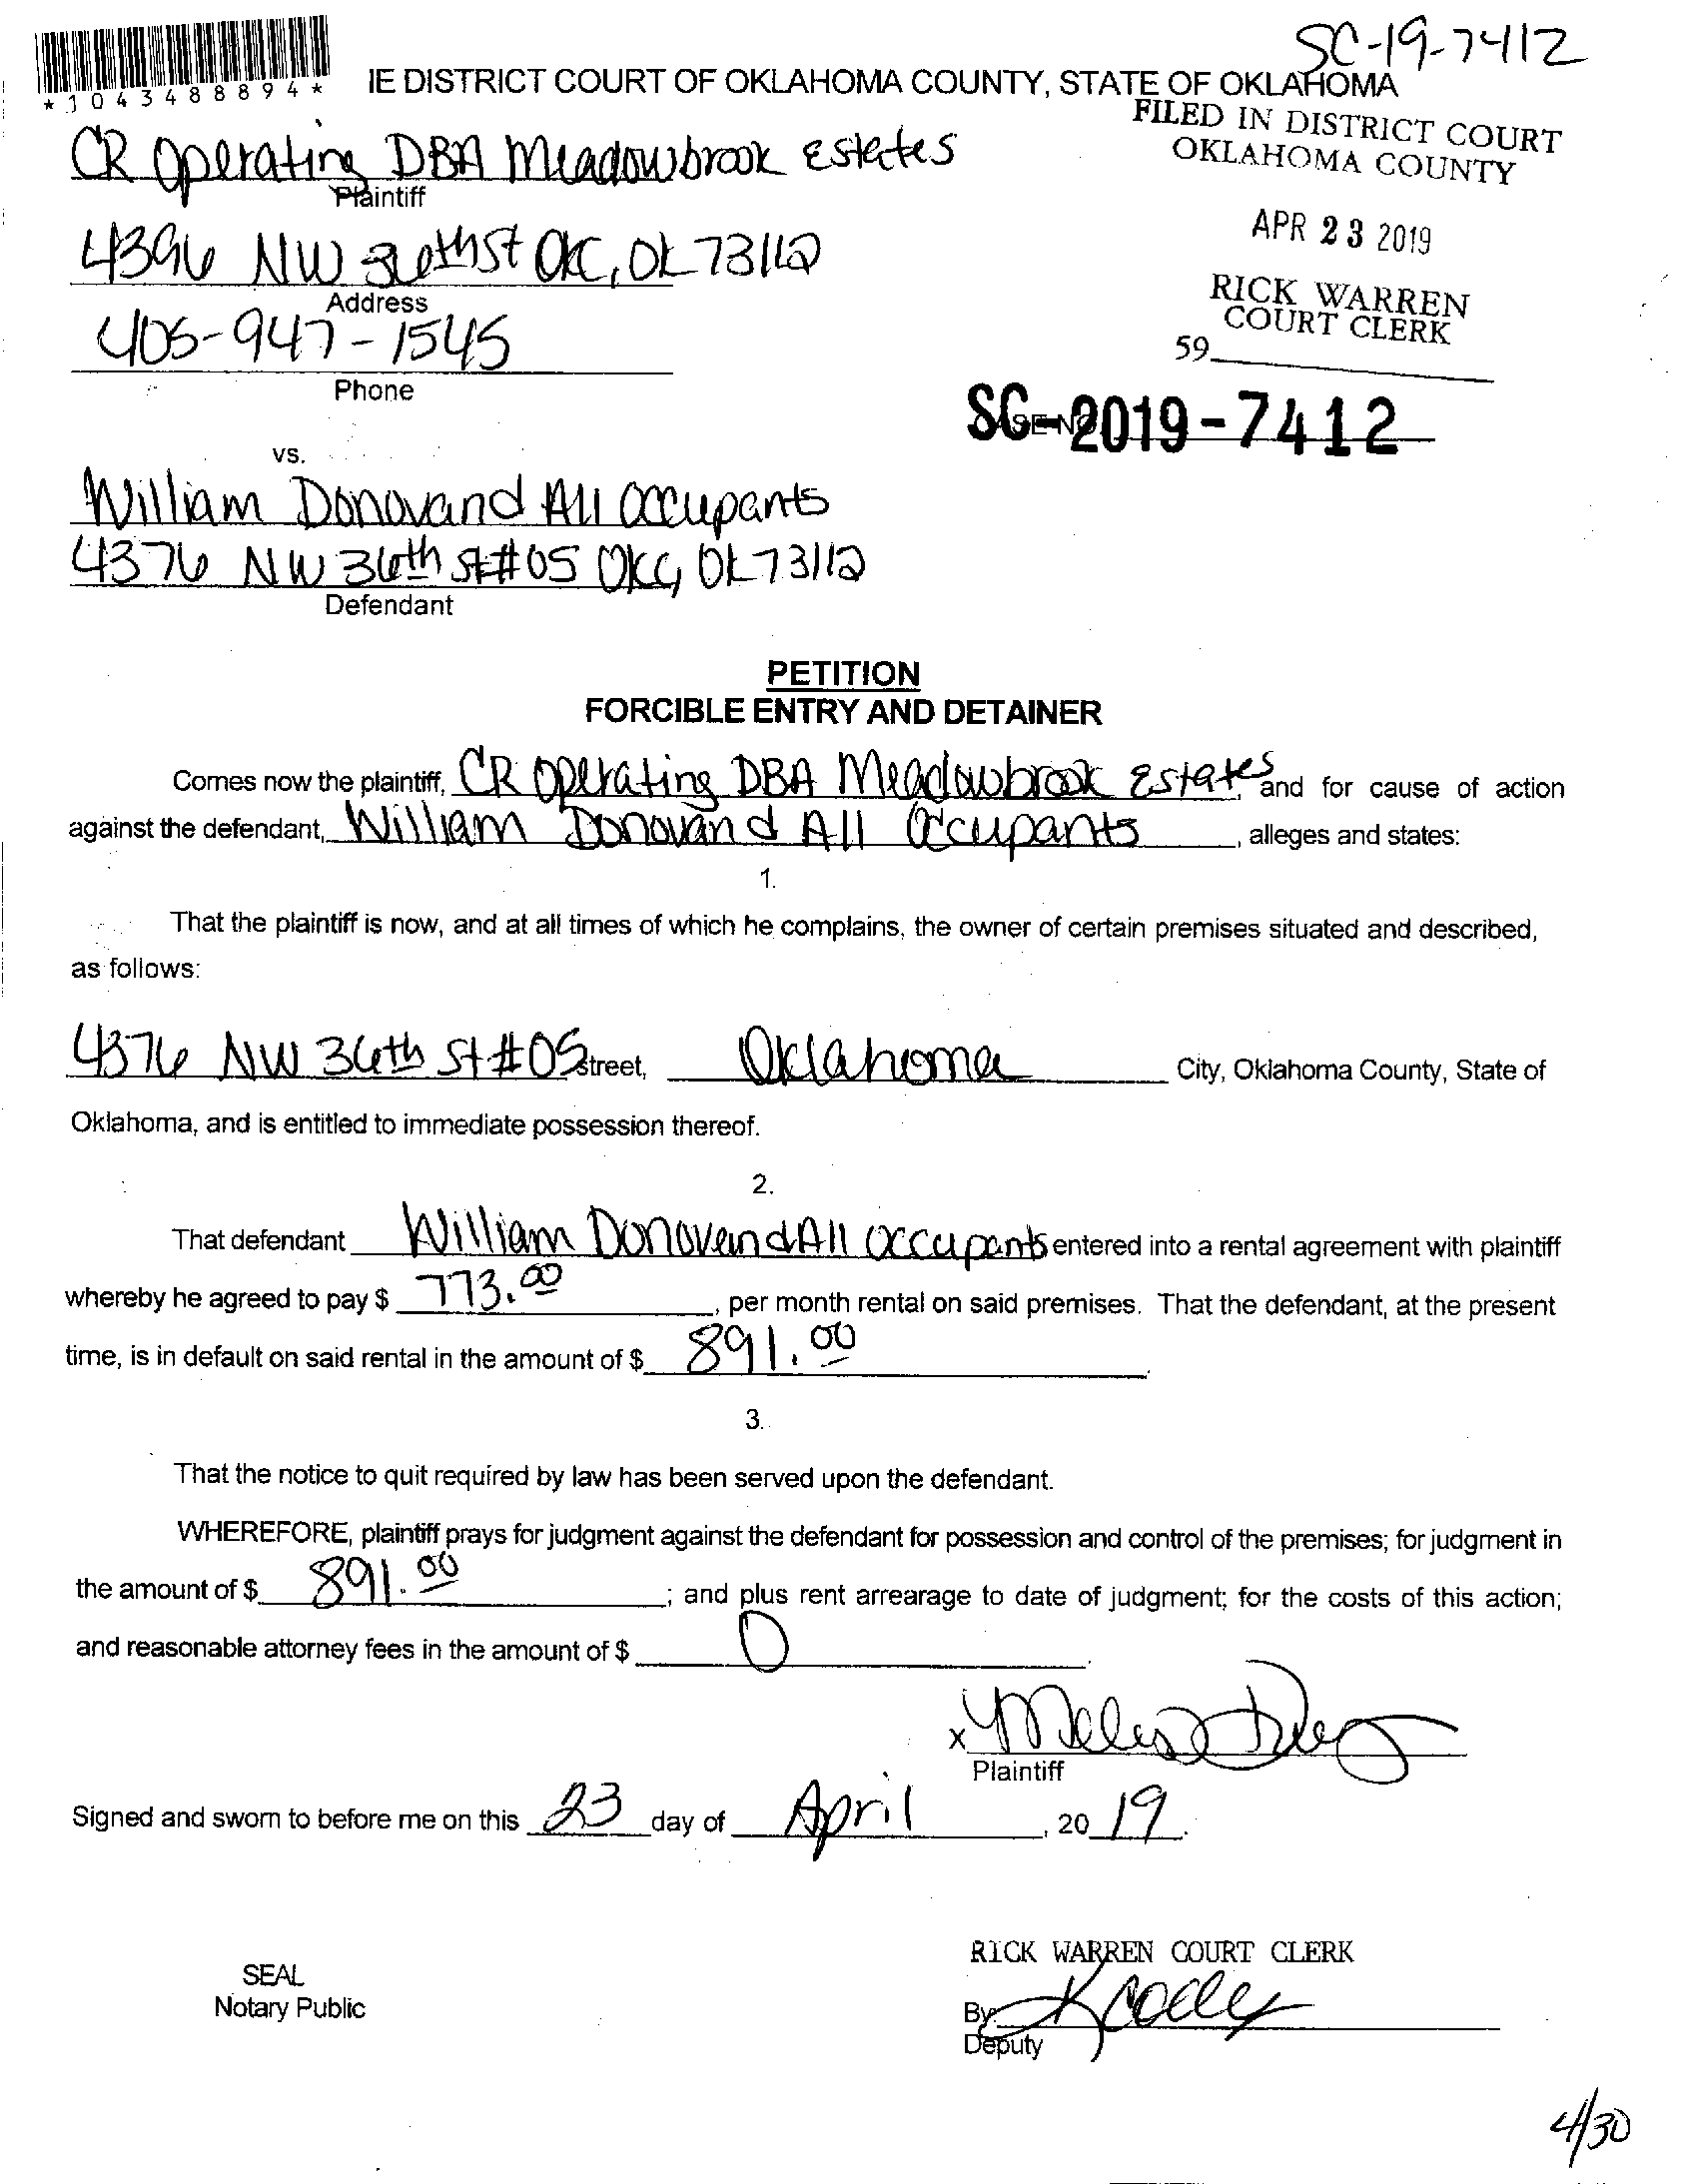 SC-19-7412
*1043488894*
IE DISTRICT COURT OF OKLAHOMA COUNTY, STATE OF OKLAHOMA
FILED IN DISTRICT COURT
OKLAHOMA COUNTY
CR Operating DBA Meadowbrook Estates
Plaintiff
APR 23 2019
4396 NW 36th St OKC, OK 73112
Address
RICK WARREN
COURT CLERK
405-947-1545
59
Phone
SC-2019-7412
vs.
William Donovan d All Occupants
4376 NW 36th St #05 OKC, OK 73112
Defendant
PETITION
FORCIBLE ENTRY AND DETAINER
Comes now the plaintiff, CR Operating DBA Meadowbrook Estates, and for cause of action
against the defendant, William Donovan d All Occupants, alleges and states:
1.
That the plaintiff is now, and at all times of which he complains, the owner of certain premises situated and described,
as follows:
4376 NW 36th St #05 Street, Oklahoma City, Oklahoma County, State of
Oklahoma, and is entitled to immediate possession thereof.
2.
That defendant William Donovan d All Occupants entered into a rental agreement with plaintiff
whereby he agreed to pay $ 773.00, per month rental on said premises. That the defendant, at the present
time, is in default on said rental in the amount of $ 891.00.
3.
That the notice to quit required by law has been served upon the defendant.
WHEREFORE, plaintiff prays for judgment against the defendant for possession and control of the premises; for judgment in
the amount of $ 891.00; and plus rent arrearage to date of judgment; for the costs of this action;
and reasonable attorney fees in the amount of $ 0.
X
Plaintiff
Signed and sworn to before me on this 23 day of April, 2019.
RICK WARREN COURT CLERK
SEAL
Notary Public
By:
Deputy
4/30